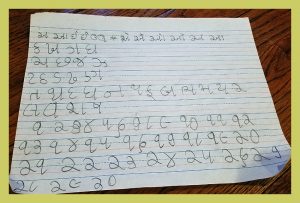 અ આ ઇ ઈ ઉ એ ઐ ઓ ઔ અં
ક ખ ગ ઘ
ચ છ જ ઝ
ટ ઠ ડ ઢ ણ
ત થ દ ધ ન પ ફ બ ભ મ ય ર
લ વ શ
૧ ૨ ૩ ૪ ૫ ૬ ૭ ૮ ૯ ૧૦ ૧૧ ૧૨
૧૩ ૧૪ ૧૫ ૧૬ ૧૭ ૧૮ ૧૯ ૨૦
૨૧ ૨૨ ૨૩ ૨૪ ૨૫ ૨૬ ૨૭
૨૮ ૨૯ ૩૦